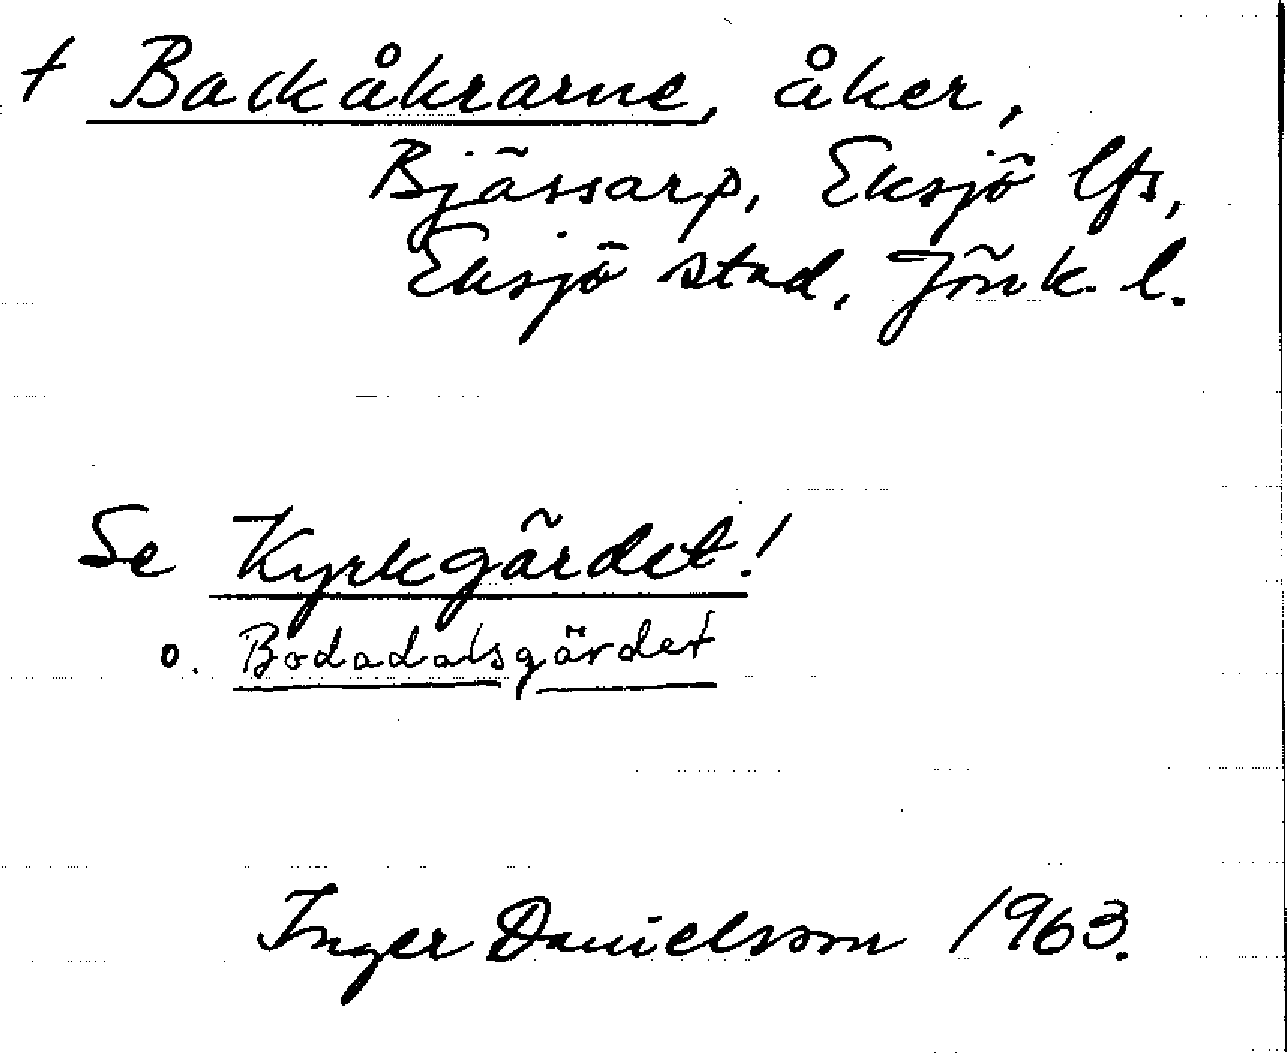 † Backåkrarne, åker,
Bjässarp, Eksjö lfs,
Eksjö stad, Jönk. l.
Se Kyrkgärdet!
o. Bodadalsgärdet
Inger Danielsson 1963.